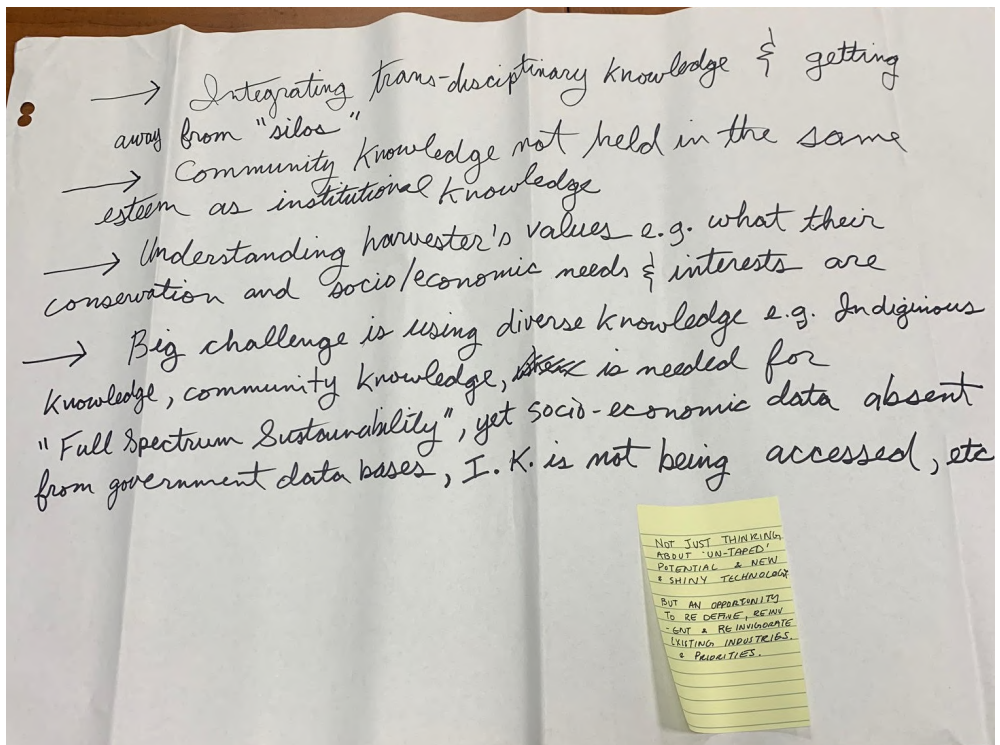 → Integrating trans-disciplinary knowledge & getting
away from "silos"
→ Community knowledge not held in the same
esteem as institutional knowledge
→ Understanding harvester's values e.g. what their
conservation and socio/economic needs & interests are
→ Big challenge is using diverse knowledge e.g. Indiginous
knowledge, community knowledge, is needed for
"Full Spectrum Sustainability", yet socio-economic data absent
from government data bases, I.K. is not being accessed, etc
NOT JUST THINKING
ABOUT 'UN-TAPED'
POTENTIAL & NEW
& SHINY TECHNOLOGY
BUT AN OPPORTUNITY
TO RE DEFINE, REINV
-ENT & REINVIGORATE
EXISTING INDUSTRIES.
& PRIORITIES.